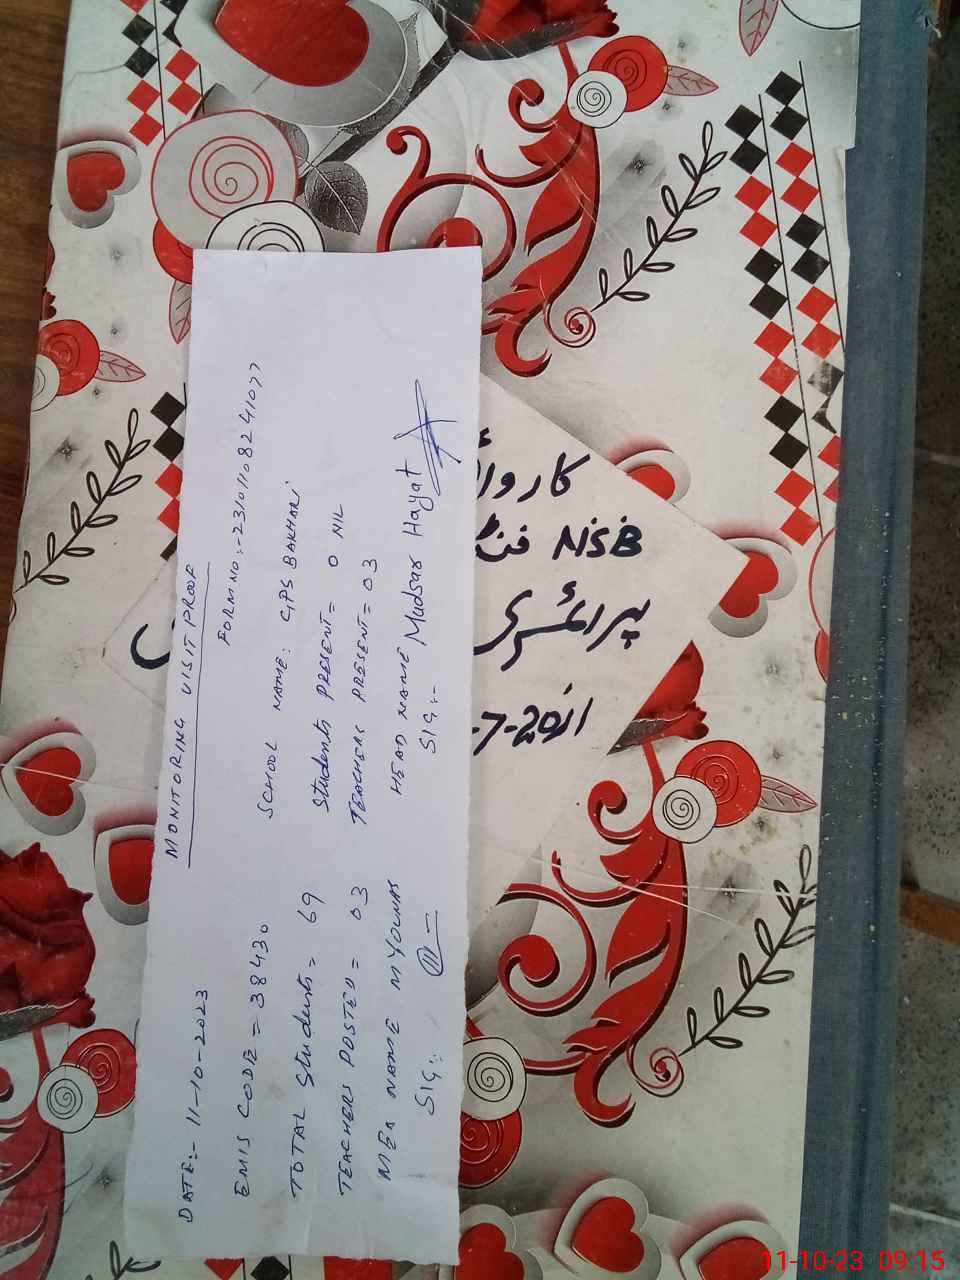 MONITORING VISIT PROOF
DATE:- 11-10-2023
FORM NO:-23101108241077
EMIS CODE = 38430
SCHOOL NAME: GPS BAKHARI
TOTAL Students = 69
Students PRESENT = 0 NIL
TEACHERS POSTED = 03
TEACHERS PRESENT = 03
MEA NAME M YOUNAS
HEAD NAME Mudsar Hayat
SIG:-
SIG:-
NSB فنڈ
پرائمری
از 20-7-
11-10-23 09:15